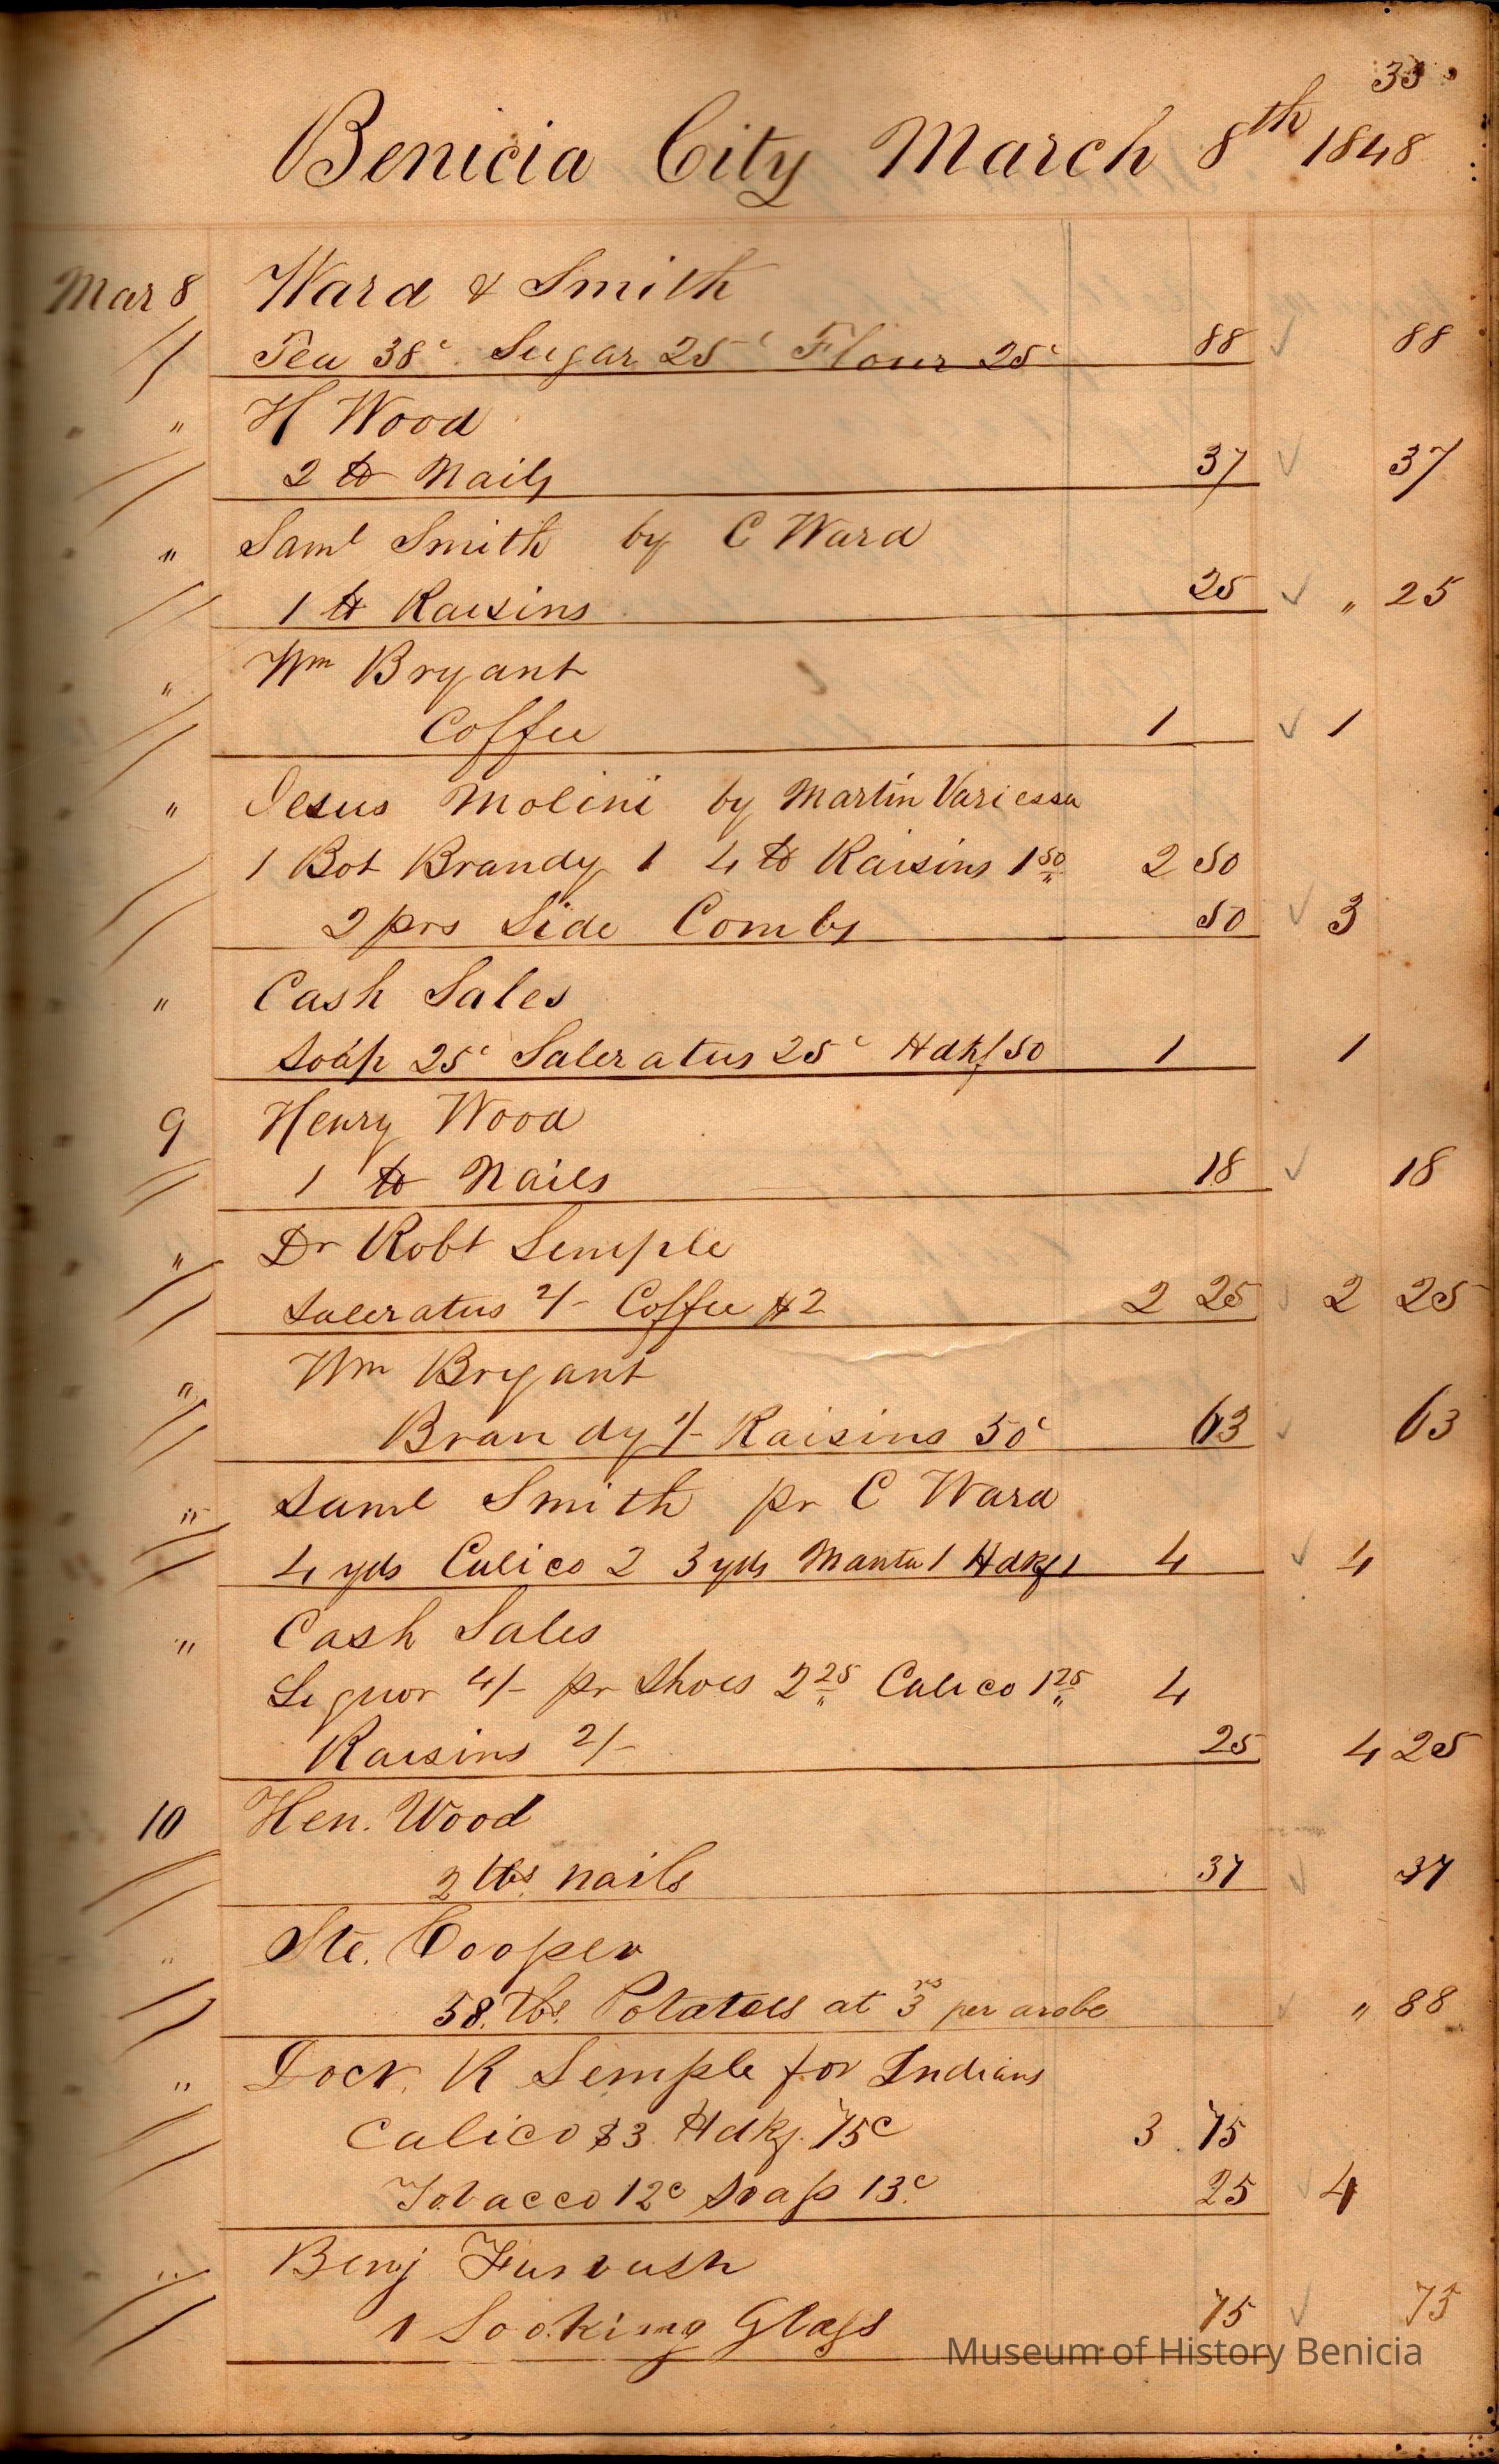 33
Benicia City March 8th 1848
Mar 8 Ward & Smith
Tea 38c Sugar 25c Flour 25c 88 ✓ 88
" H Wood
2 lb Nails 37 ✓ 37
" Saml Smith by C Ward
1 lb Raisins 25 ✓ " 25
" Wm Bryant
Coffee 1 ✓ 1
" Jesus Molini by Martin Variessa
1 Bot Brandy 1 4 lb Raisins 1 50 2 50
2 prs Side Combs 50 ✓ 3
" Cash Sales
Soap 25c Saleratus 25c Hdkf 50 1 1
9 Henry Wood
1 lb Nails 18 ✓ 18
" Dr Robt Semple
Saleratus 2/- Coffee $2 2 25 ✓ 2 25
" Wm Bryant
Brandy 1/- Raisins 50c 63 ✓ 63
" Saml Smith pr C Ward
4 yds Calico 2 3 yds Manta 1 Hdkf 1 4 ✓ 4
" Cash Sales
Liquor 4/- pr Shoes 2 25 Calico 1 25 4
Raisins 2/- 25 4 25
10 Hen. Wood
2 lbs nails 37 ✓ 37
" Ste. Cooper
58 lbs. Potatoes at 3rs per arobe ✓ " 88
" Docr. R Semple for Indians
Calico $3 Hdkf. 75c 3 75
Tobacco 12c Soap 13c 25 ✓ 4
" Benj
1 Looking Glass 75 ✓ 75
Museum of History Benicia